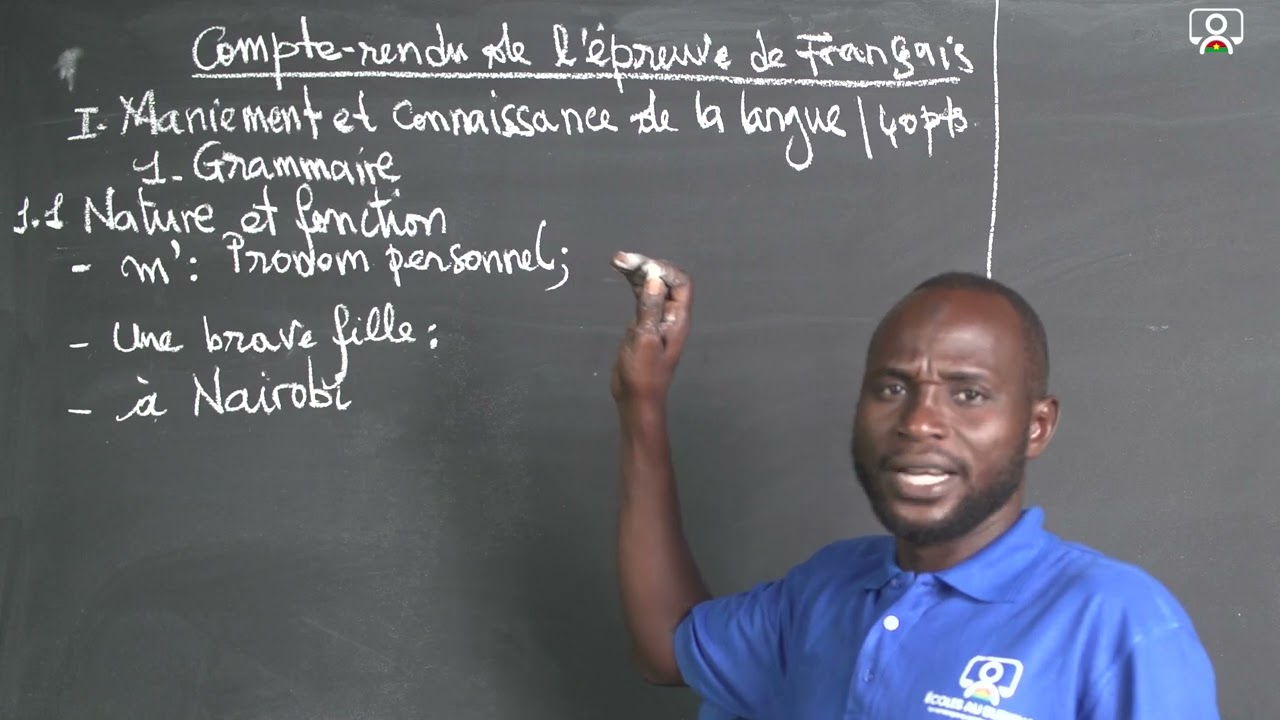 Compte-rendu de l'épreuve de Français
I. Maniement et connaissance de la langue / 40pts
1. Grammaire
1.1 Nature et fonction
- m': Pronom personnel;
- Une brave fille:
- à Nairobi
ÉCOLES AU